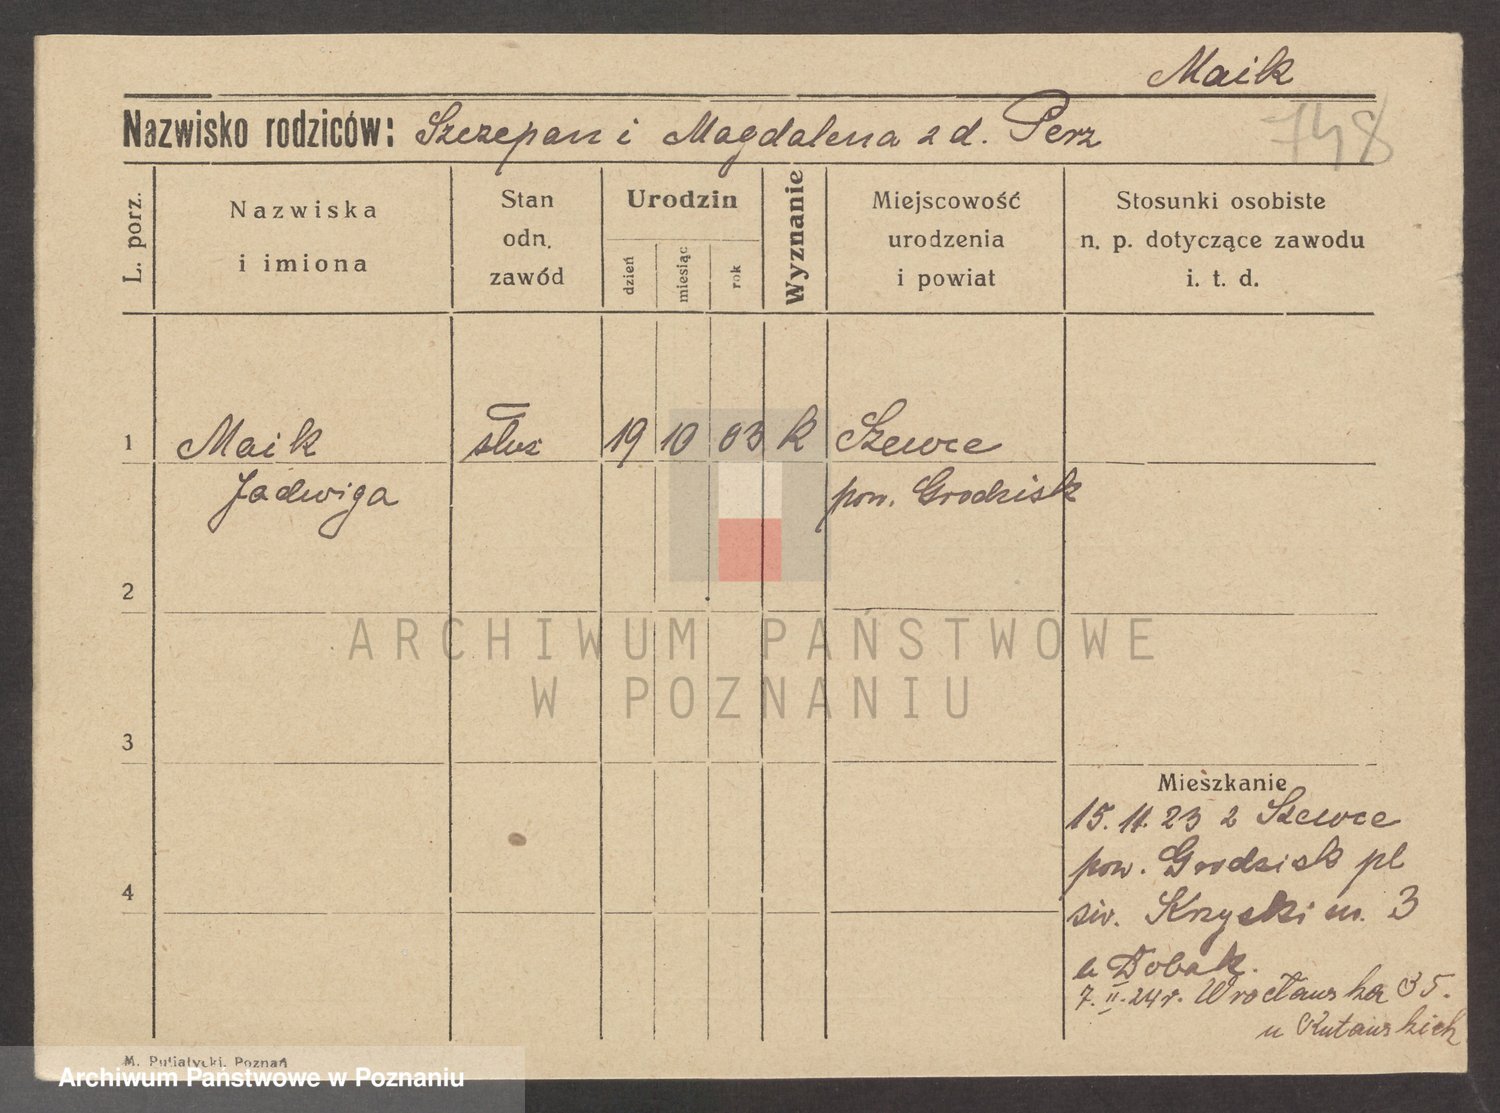 Maik
Nazwisko rodziców: Szczepan i Magdalena z d. Perz
748
L. porz.
Nazwiska
i imiona
Stan
odn.
zawód
Urodzin
dzień
miesiąc
rok
Wyznanie
Miejscowość
urodzenia
i powiat
Stosunki osobiste
n. p. dotyczące zawodu
i. t. d.
1 Maik służ 19 10 03 k Szewce
Jadwiga pow. Grodzisk
2
ARCHIWUM PAŃSTWOWE
W POZNANIU
3
Mieszkanie
15. 11. 23 z Szewce
pow. Grodzisk pl
4
św. Krzyski m. 3
u Dobak.
7. II. 24 r. Wrocławska 35.
u
M. Putiatycki, Poznań
Archiwum Państwowe w Poznaniu